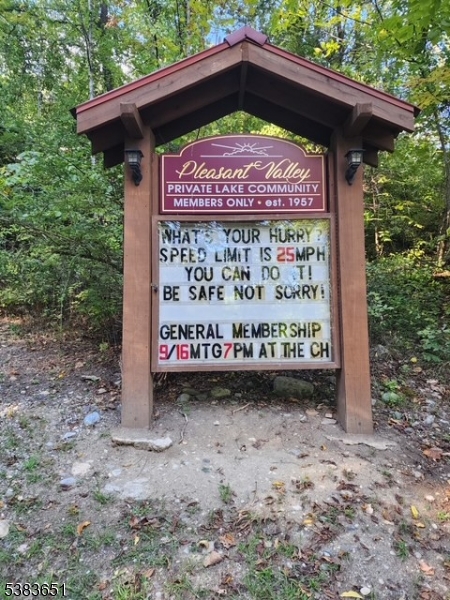 Pleasant Valley
PRIVATE LAKE COMMUNITY
MEMBERS ONLY • est. 1957
WHAT'S YOUR HURRY?
SPEED LIMIT IS 25MPH
YOU CAN DO IT!
BE SAFE NOT SORRY!
GENERAL MEMBERSHIP
9/16MTG7PM AT THE CH
5383651